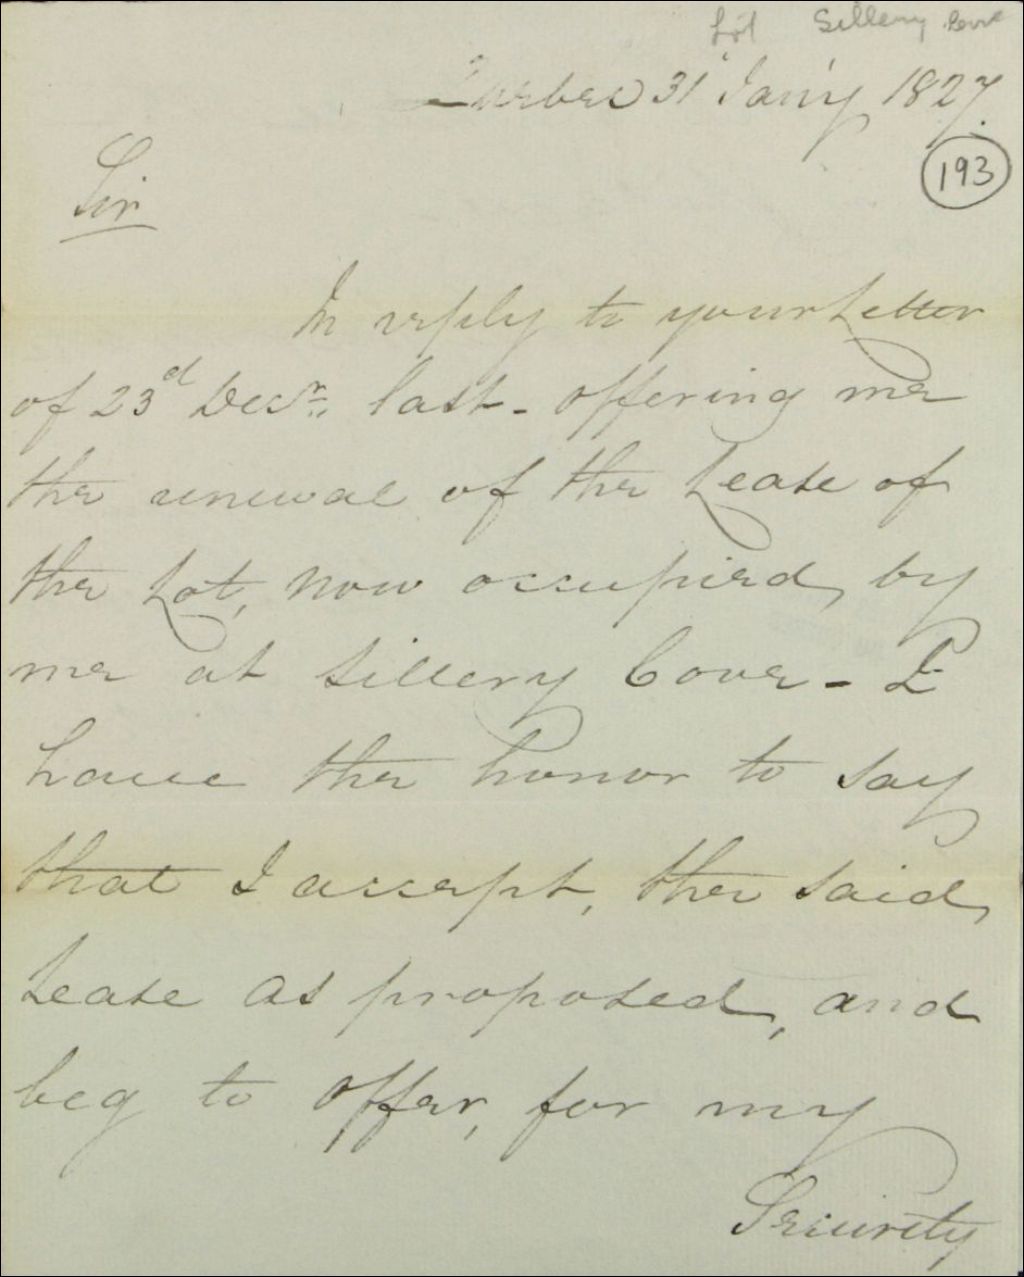 Lot Sillery Cove
Quebec 31 Jan'y 1827.
193
Sir
In reply to your Letter
of 23d Decr. last - offering me
the renewal of the Lease of
the Lot, now occupied, by
me at Sillery Cove - I
have the honor to say
that I accept, the said,
Lease as proposed, and
beg to offer, for my
Security